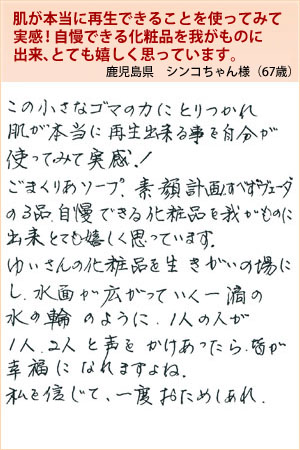 肌が本当に再生できることを使ってみて
実感！自慢できる化粧品を我がものに
出来、とても嬉しく思っています。
鹿児島県　シンコちゃん様（67歳）
この小さなゴマの力にとりつかれ
肌が本当に再生出来る事を自分が
使ってみて実感！
ごまくりあソープ、素顔計画、すべずヴェーダ
の3品、自慢できる化粧品を我がものに
出来とても嬉しく思っています。
ゆぃさんの化粧品を生きがいの場に
し、水面が広がっていく一滴の
水の輪のように、1人の人が
1人、2人と声をかけあったら、皆が
幸福になれますよね。
私を信じて、一度おためしあれ。